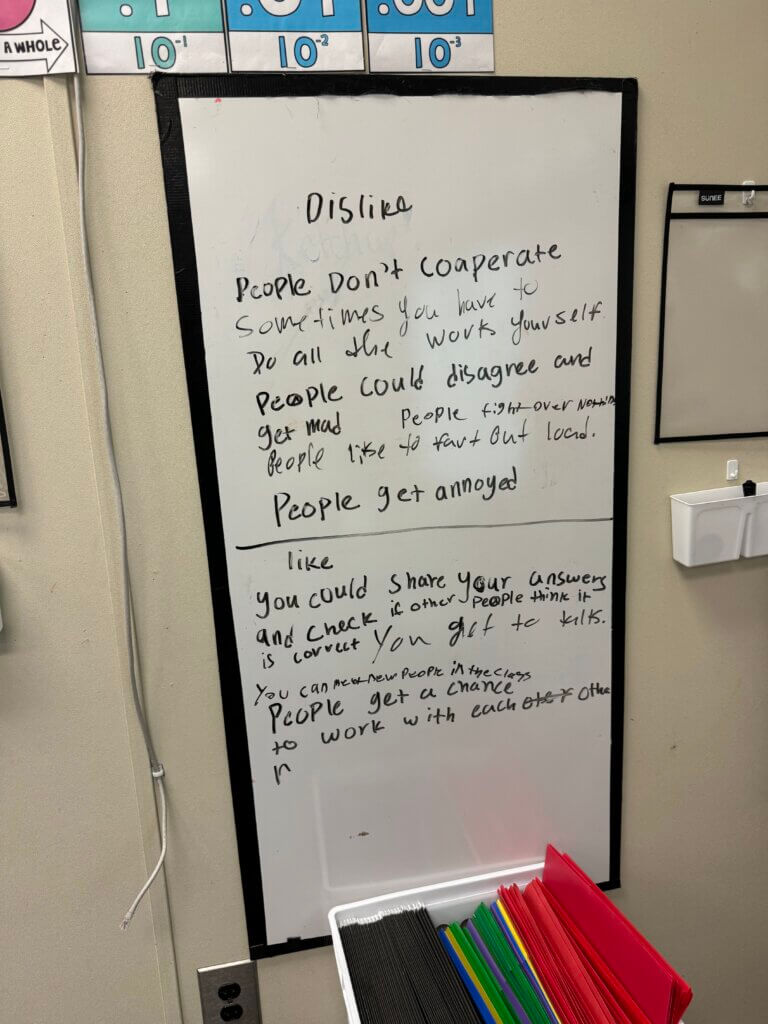 A WHOLE
.1
10-1
.01
10-2
.001
10-3
SUNEE
Dislike
People Don't coaperate
Sometimes you have to
Do all the work yourself.
People could disagree and
get mad People fight over Nothing
People like to fart out loud.
People get annoyed
like
you could share your answers
and check if other People think it
is correct You get to talk.
You can meet new People in the class
People get a chance
to work with each other
n